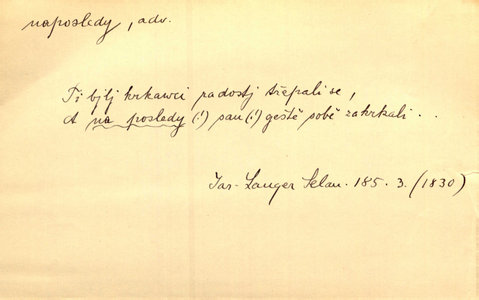 naposledy, adv.
Ti bjlj krkawci radostj třepali se,
A na posledy (!) sau (!) geště sobě zakrkali . .
Jar. Langer Selan. 185. 3. (1830)